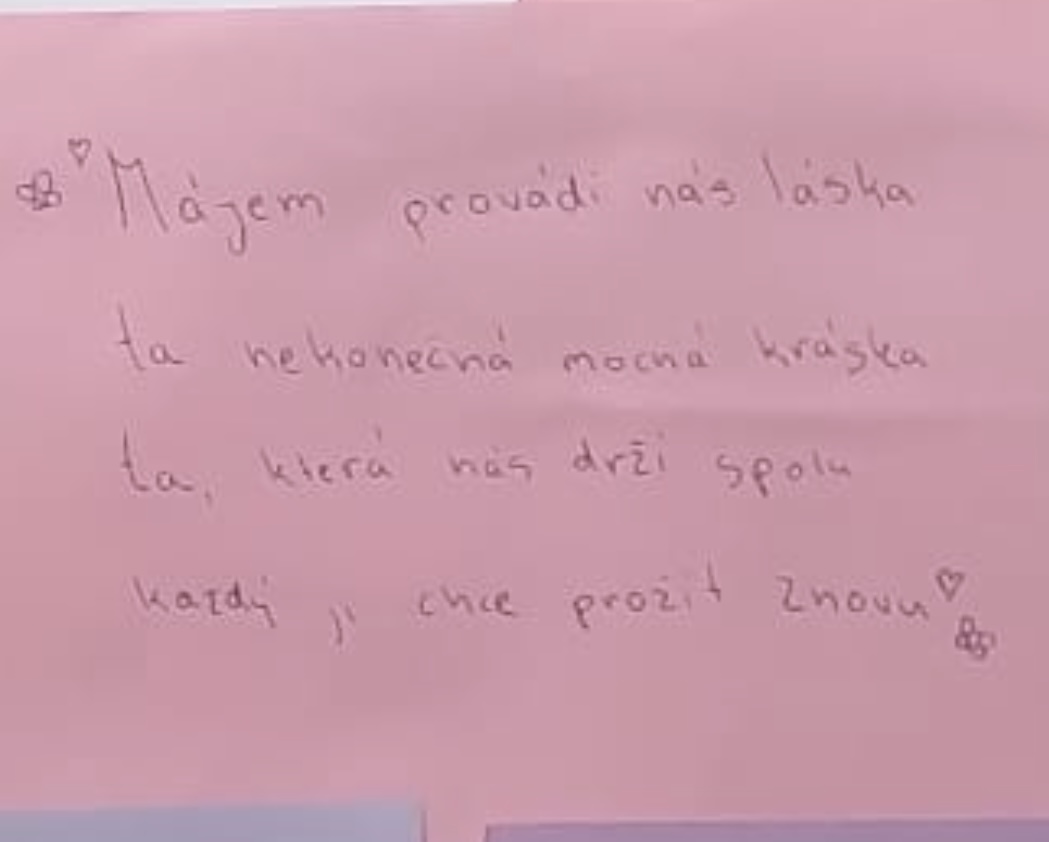 Májem provádí nás láska
ta nekonečná mocná kráska
ta, která nás drží spolu
každý jí chce prožít znovu